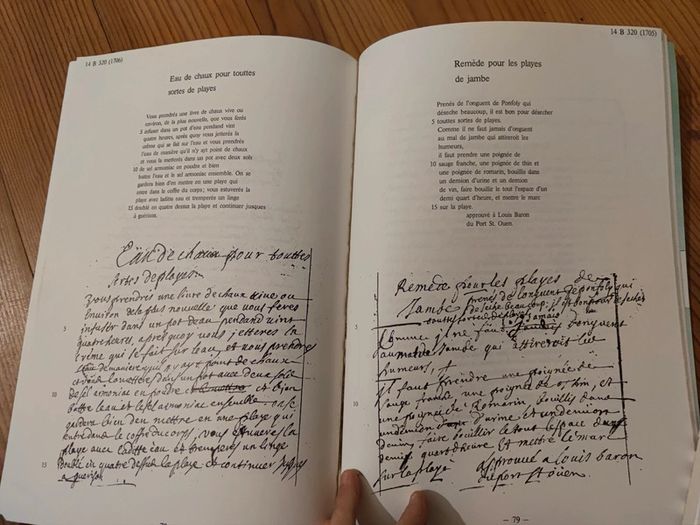 14 B 320 (1706)
Eau de chaux pour touttes
sortes de playes
Vous prendrés une livre de chaux vive ou
environ, de la plus nouvelle, que vous ferés
5 infuser dans un pot d'eau pendand vint
quatre heures, après quoy vous jetterés la
crême qui se fait sur l'eau et vous prendrés
l'eau de manière qu'il n'y ayt point de chaux
et vous la mettrés dans un pot avec deux sols
10 de sel armoniac en poudre et bien
battre l'eau et le sel armoniac ensemble. On se
gardera bien d'en mettre en une playe qui
entre dans le coffre du corps; vous estuverés la
playe avec laditte eau et tremperés un linge
15 double en quatre dessus la playe et continuer jusques
à guérison.
Eau de chaux pour touttes
sortes de playes
Vous prendres une livre de chaux vive ou
environ de la plus nouvelle que vous feres
5 infuser dans un pot deau pendand vint
quatre heures, apres quoy vous jetteres la
creme qui se fait sur leau, et vous prendres
leau de maniere quil ny ayt point de chaux
et vous la mettres dans un pot avec deux sols
10 de sel armoniac en poudre et bien
battre leau et le sel armoniac ensemble on se
gardera bien den mettre en une playe qui
entre dans le coffre du corps, vous estuveres la
playe avec laditte eau et tremperes un linge
15 double en quatre dessus la playe et continuer jusques
a guerison
14 B 320 (1705)
Remède pour les playes
de jambe
Prenés de l'onguent de Ponfoly qui
déseche beaucoup, il est bon pour désecher
5 touttes sortes de playes.
Comme il ne faut jamais d'onguent
au mal de jambe qui attireroit les
humeurs,
il faut prendre une poignée de
10 sauge franche, une poignée de thin et
une poignée de romarin, bouillis dans
un demion d'urine et un demion
de vin, faire bouillir le tout l'espace d'un
demi quart d'heure, et mettre le marc
15 sur la playe.
approuvé à Louis Baron
du Port St. Ouen.
Remede pour les playes de
Jambe prenes de longuent de ponfoly qui
deseche beaucoup, il est bon pour desecher
touttes sortes de playes
5 comme il ne faut jamais donguent
au mal de jambe qui attireroit les
humeurs,
il faut prendre une poignée de
10 sauge franche, une poignée de thin, et
une poignée de Romarin, bouillis dans
un demion durine et un demion
de vin, faire bouillir le tout lespace dun
demy quart dheure et mettre le marc
15 sur la playe approuvé a Louis baron
du port st ouen
— 79 —